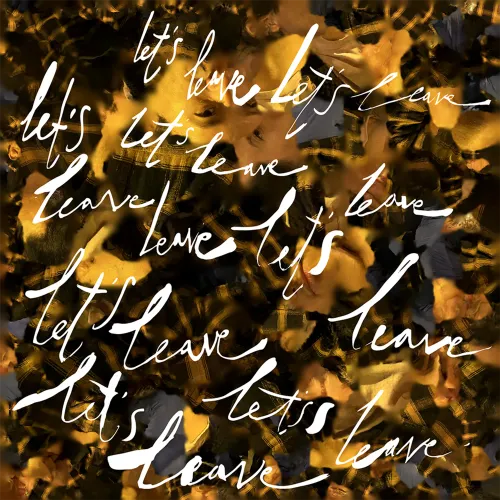 let's leave let's leave
let's let's leave
leave leave
leave let's
let's leave leave
let's let'ss
leave leave.